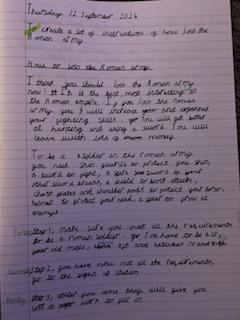 Thursday 12 September 2024
To create a set of instructions of how join the
Roman army.
How to join the Roman army
I think you should join the Roman army
now! It is the best, most interesting in
the Roman empire. If you join the roman
army you'll increase your and expanded
your fighting skills. You will get better
at hunting and using a sword You will
leave with lots of money!
To be a soldier in the roman army
you need shin guards to protect you shin,
a sword to fight, a
other sword , a shield to block attacks,
chest plates and shoulder pads to protect your torso,
helmet to protect your head, a to throw at
enemys.
Firstly Step 1, make sure you met all the requirements
to be a Roman soldier. You have to be a
year old male, and between 10 and
Secondly Step 2, you have now met all the requirements,
go to the sign up station.
Step 3, when you came they will give you
lots of to fill in